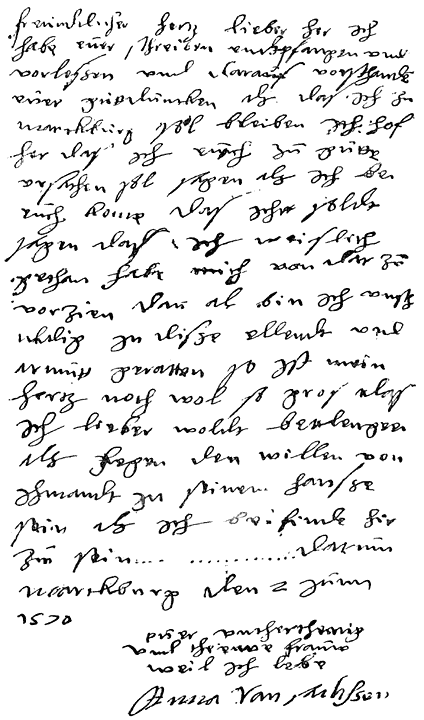 freundtlicher hertz lieber her Ich
habe euer schreiben entpfangen und
vorlessen und daraus vorstanden
euer guedüncken als das ich zu
marckburg sol bleiben Ich hof
her das ich euch zu gutte
ursachen sol sagen als ich bei
euch kome das Ihr solt
sagen das ich weislich
gethan habe mich von dar zu
vorzien dan als bin ich unsz
in disse ellendt und
armut geratten so ist mein
hertz noch wol so gros das
Ich lieber woldt
als gegen den willen von
Ihmandt in seinem hausse
sein als ich befinde hir
zu sein.... ............darum
marckburg den 2 Juni
1570
euer untherthenig
und threwe frauw
weil ich lebe
Anna Van sachssen